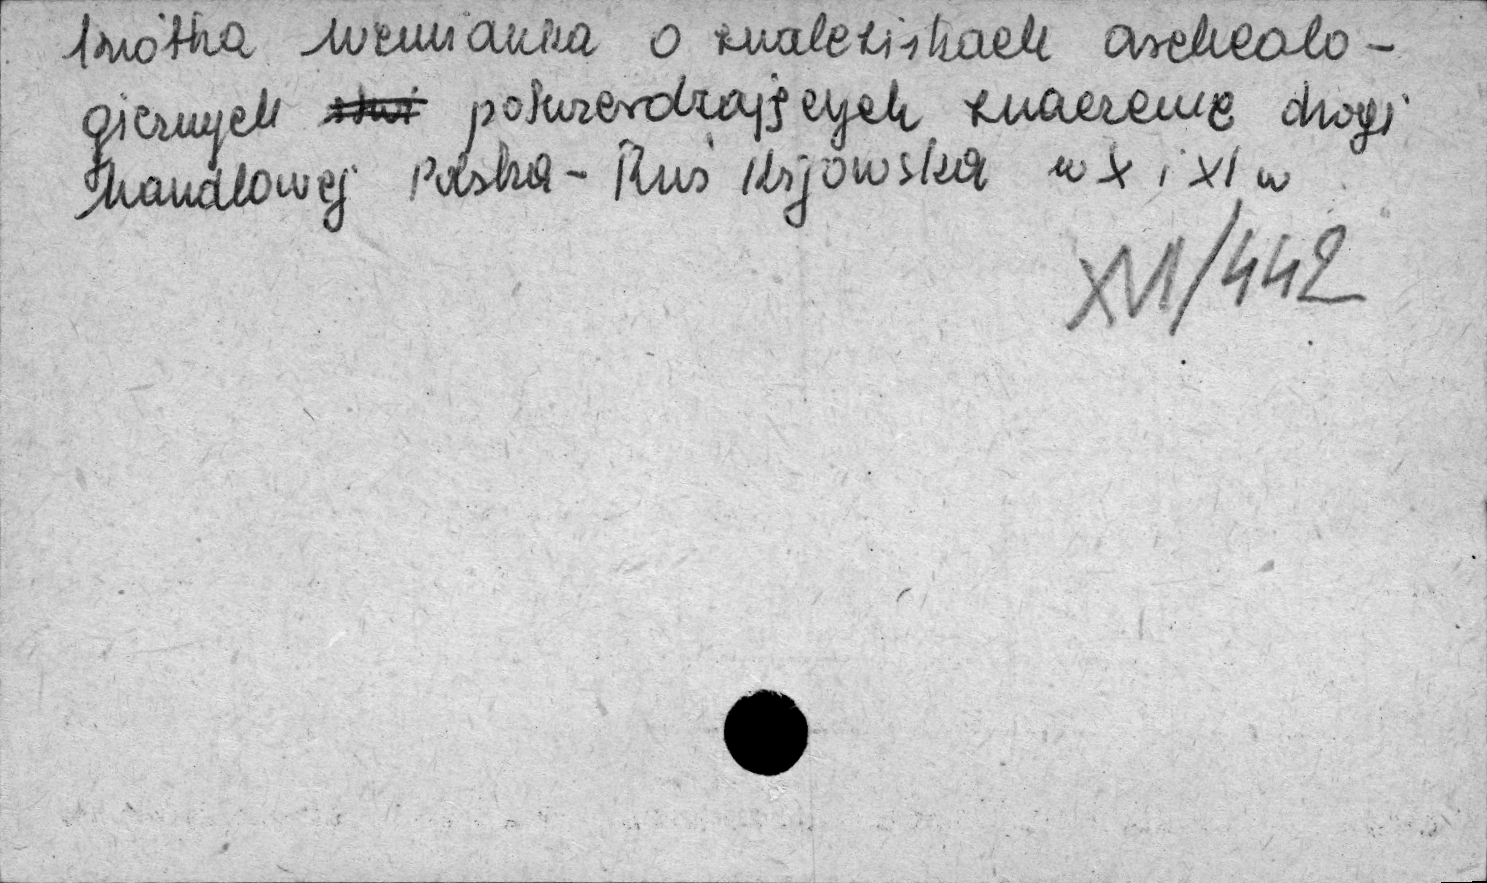 krótka wzmianka o znaleziskach archeolo-
gicznych potwierdzających znaczenie drogi
handlowej Polska - Ruś Kijowska w X i XI w
XVI/442